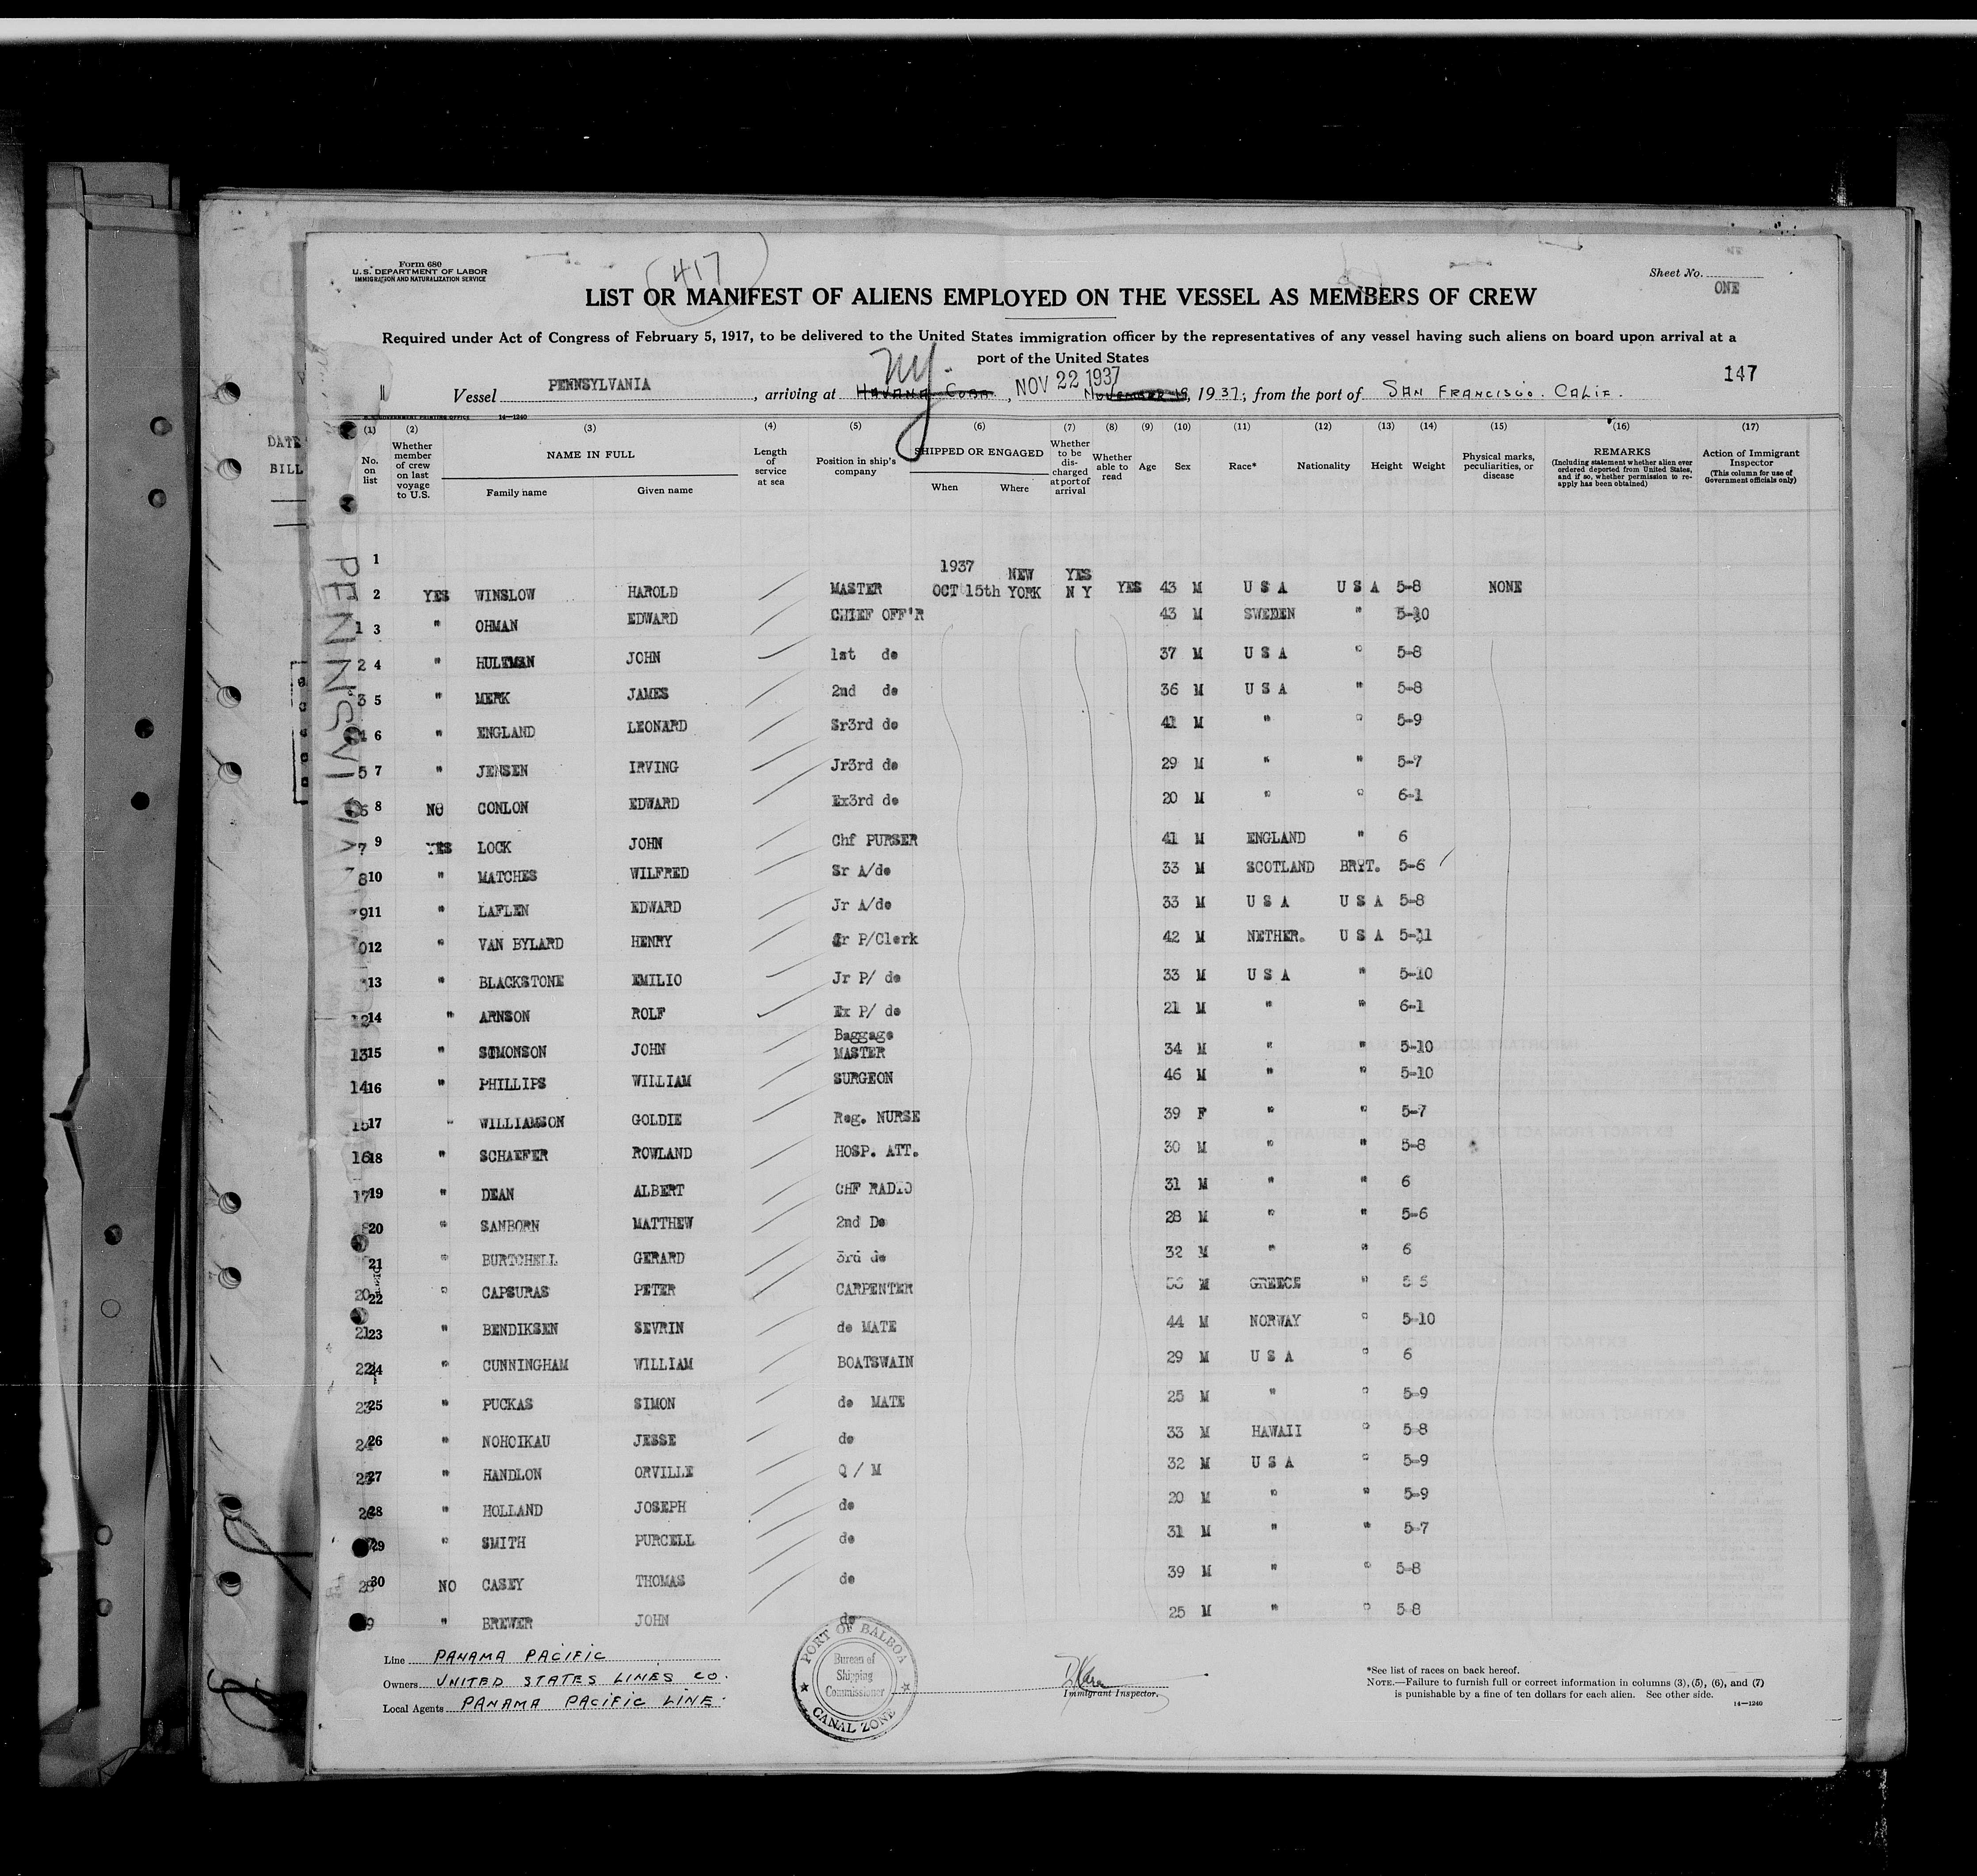 417
Form 680
U.S. DEPARTMENT OF LABOR
IMMIGRATION AND NATURALIZATION SERVICE
Sheet No.
ONE
LIST OR MANIFEST OF ALIENS EMPLOYED ON THE VESSEL AS MEMBERS OF CREW
Required under Act of Congress of February 5, 1917, to be delivered to the United States immigration officer by the representatives of any vessel having such aliens on board upon arrival at a
port of the United States
147
Vessel PENNSYLVANIA, arriving at HAVANA CUBA NY., NOV 22 1937 NOVEMBER 19, 1937; from the port of SAN FRANCISCO. CALIF.
U. S. GOVERNMENT PRINTING OFFICE 14—1240
DATE
BILL
PENN'SYLVANIA
(1) (2) (3) (4) (5) (6) (7) (8) (9) (10) (11) (12) (13) (14) (15) (16) (17)
No. on list
Whether member of crew on last voyage to U.S.
NAME IN FULL
Family name Given name
Length of service at sea
Position in ship's company
SHIPPED OR ENGAGED
When Where
Whether to be discharged at port of arrival
Whether able to read
Age
Sex
Race*
Nationality
Height
Weight
Physical marks, peculiarities, or disease
REMARKS
(Including statement whether alien ever ordered deported from United States, and if so, whether permission to re-apply has been obtained)
Action of Immigrant Inspector
(This column for use of Government officials only)
1
1937 NEW YES
2 YES WINSLOW HAROLD MASTER OCT 15th YORK N Y YES 43 M U S A U S A 5-8 NONE
1 3 " OHMAN EDWARD CHIEF OFF'R 43 M SWEDEN " 5-10
2 4 " HULTMAN JOHN 1st do 37 M U S A " 5-8
3 5 " MERK JAMES 2nd do 36 M U S A " 5-8
4 6 " ENGLAND LEONARD Sr3rd do 41 M " " 5-9
5 7 " JENSEN IRVING Jr3rd do 29 M " " 5-7
6 8 NO CONLON EDWARD Ex3rd do 20 M " " 6-1
7 9 YES LOCK JOHN Chf PURSER 41 M ENGLAND " 6
8 10 " MATCHES WILFRED Sr A/do 33 M SCOTLAND BRIT. 5-6
9 11 " LAFLEN EDWARD Jr A/do 33 M U S A U S A 5-8
0 12 " VAN BYLARD HENRY Sr P/Clerk 42 M NETHER. U S A 5-11
13 " BLACKSTONE EMILIO Jr P/ do 33 M U S A " 5-10
12 14 " ARNSON ROLF Ex P/ do 21 M " " 6-1
Baggage
13 15 " SIMONSON JOHN MASTER 34 M " " 5-10
14 16 " PHILLIPS WILLIAM SURGEON 46 M " " 5-10
15 17 " WILLIAMSON GOLDIE Reg. NURSE 39 F " " 5-7
16 18 " SCHAEFER ROWLAND HOSP. ATT. 30 M " " 5-8
17 19 " DEAN ALBERT CHF RADIO 31 M " " 6
20 " SANBORN MATTHEW 2nd Do 28 M " " 5-6
21 " BURTCHELL GERARD 3rd do 32 M " " 6
20 22 " CAPSURAS PETER CARPENTER M GREECE " 5 5
21 23 " BENDIKSEN SEVRIN do MATE 44 M NORWAY " 5-10
22 24 " CUNNINGHAM WILLIAM BOATSWAIN 29 M U S A " 6
23 25 " PUCKAS SIMON do MATE 25 M " " 5-9
24 26 " NOHOIKAU JESSE do 33 M HAWAII " 5-8
25 27 " HANDLON ORVILLE Q / M 32 M U S A " 5-9
26 28 " HOLLAND JOSEPH do 20 M " " 5-9
29 " SMITH PURCELL do 31 M " " 5-7
28 30 NO CASEY THOMAS do 39 M " " 5-8
9 " BREWER JOHN do 25 M " " 5-8
Line PANAMA PACIFIC
Owners UNITED STATES LINES CO.
Local Agents PANAMA PACIFIC LINE.
PORT OF BALBOA
Bureau of
Shipping
Commissioner
CANAL ZONE
Immigrant Inspector.
*See list of races on back hereof.
NOTE.—Failure to furnish full or correct information in columns (3), (5), (6), and (7)
is punishable by a fine of ten dollars for each alien. See other side.
14—1240